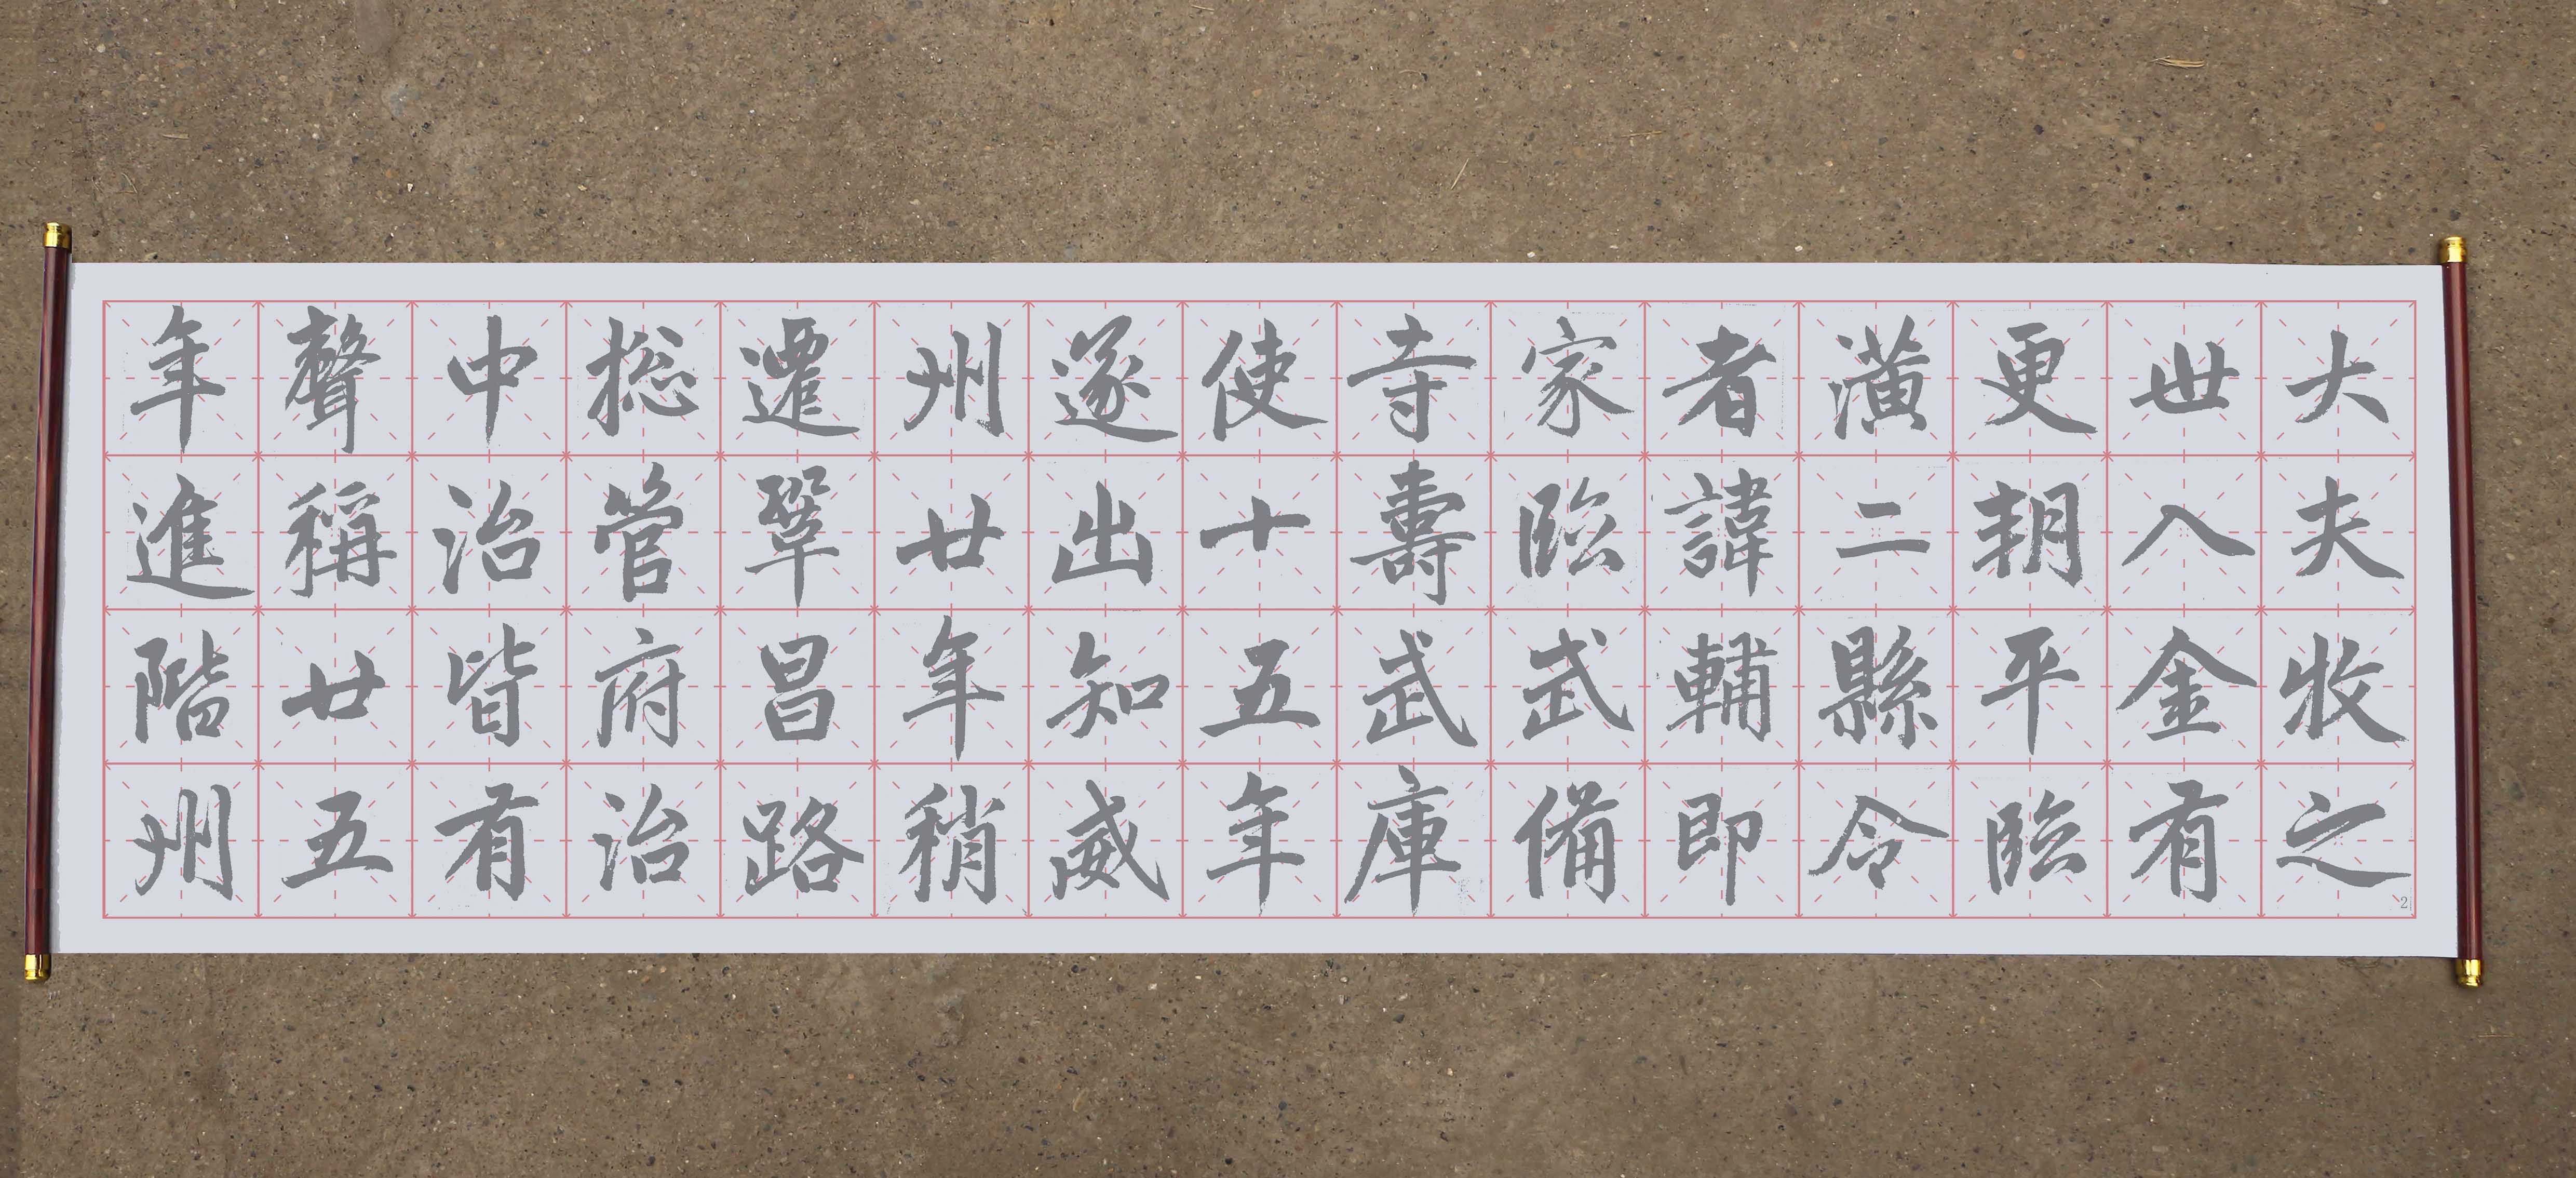 大夫收之
世入金有
更朝平臨
潢二縣令
者諱輔即
家臨武備
寺壽武庫
使十五年
遂出知威
州廿年稍
遷鞏昌路
捴管府治
中治皆有
聲稱廿五
年進階州
2